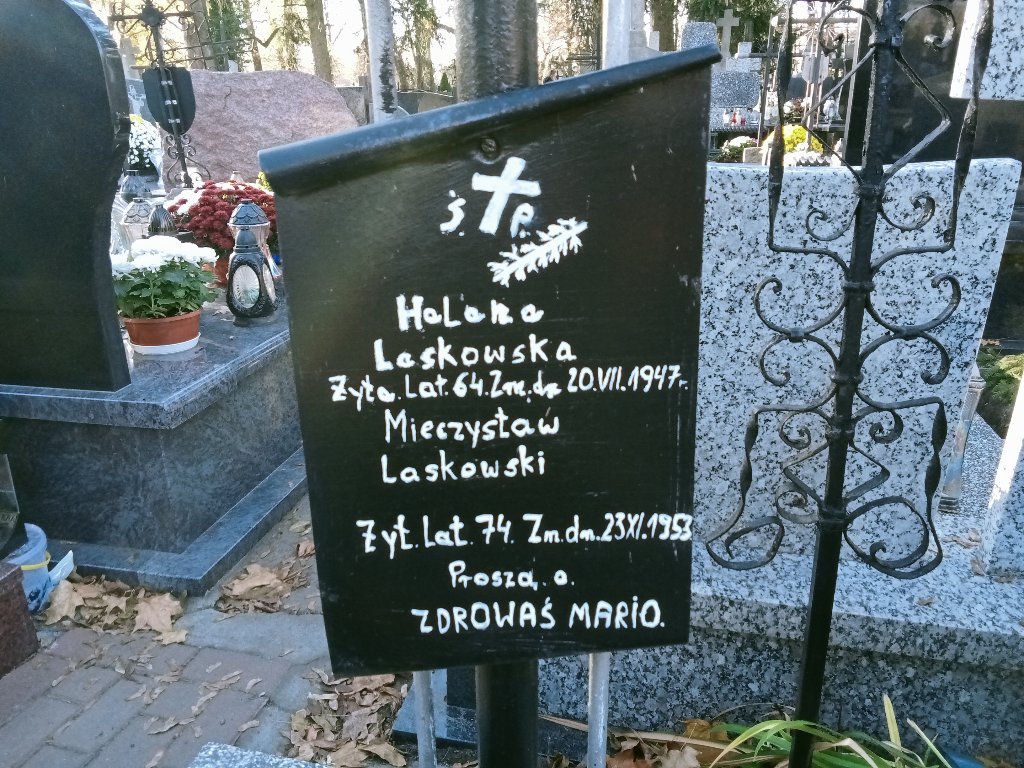 Ś. P.
HaLena
Laskowska
Żyła. Lat. 64. Zm. dn. 20.VII.1947r.
Mieczysław
Laskowski
Żył. Lat. 74. Zm. dn. 23XI.1953
Proszą. o.
ZDROWAŚ MARIO.